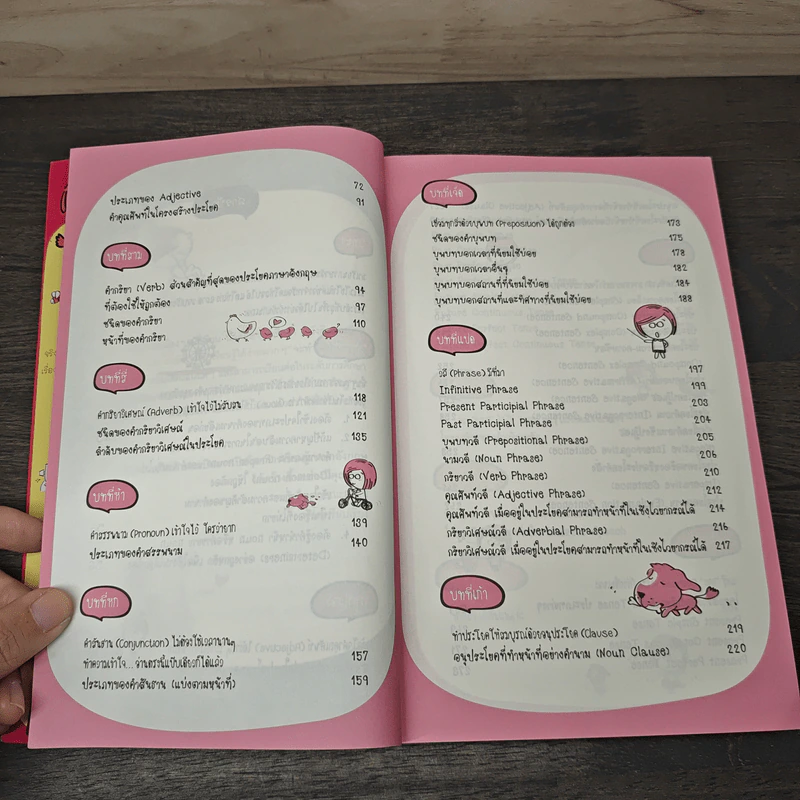 ประเภทของ Adjective 72
คำคุณศัพท์ในโครงสร้างประโยค 91
บทที่สาม
คำกริยา (Verb) ส่วนสำคัญที่สุดของประโยคภาษาอังกฤษ
ที่ต้องใช้ให้ถูกต้อง 94
ชนิดของคำกริยา 97
หน้าที่ของคำกริยา 110
บทที่สี่
คำกริยาวิเศษณ์ (Adverb) เข้าใจไว้ไม่สับสน 118
ชนิดของคำกริยาวิเศษณ์ 121
ลำดับของคำกริยาวิเศษณ์ในประโยค 135
บทที่ห้า
คำสรรพนาม (Pronoun) เข้าใจไว้ ใครว่ายาก 139
ประเภทของคำสรรพนาม 140
บทที่หก
คำสันธาน (Conjunction) ไม่ต้องใช้เวลานานๆ
ทำความเข้าใจ...อ่านตรงนี้แป๊บเดียวก็ได้แล้ว 157
ประเภทของคำสันธาน (แบ่งตามหน้าที่) 159
บทที่เจ็ด
เชื่อมทุกคำด้วยบุพบท (Preposition) ได้ถูกต้อง 173
ชนิดของคำบุพบท 175
บุพบทบอกเวลาที่นิยมใช้บ่อย 178
บุพบทบอกเวลาอื่นๆ 182
บุพบทบอกสถานที่ที่นิยมใช้บ่อย 184
บุพบทบอกสถานที่และทิศทางที่นิยมใช้บ่อย 188
บทที่แปด
วลี (Phrase) ดีที่มา 197
Infinitive Phrase 199
Present Participial Phrase 203
Past Participial Phrase 204
บุพบทวลี (Prepositional Phrase) 205
นามวลี (Noun Phrase) 206
กริยาวลี (Verb Phrase) 210
คุณศัพท์วลี (Adjective Phrase) 212
คุณศัพท์วลี เมื่ออยู่ในประโยคสามารถทำหน้าที่ในเชิงไวยากรณ์ได้ 214
กริยาวิเศษณ์วลี (Adverbial Phrase) 216
กริยาวิเศษณ์วลี เมื่ออยู่ในประโยคสามารถทำหน้าที่ในเชิงไวยากรณ์ได้ 217
บทที่เก้า
ทำประโยคให้สมบูรณ์ด้วยอนุประโยค (Clause) 219
อนุประโยคที่ทำหน้าที่อย่างคำนาม (Noun Clause) 220